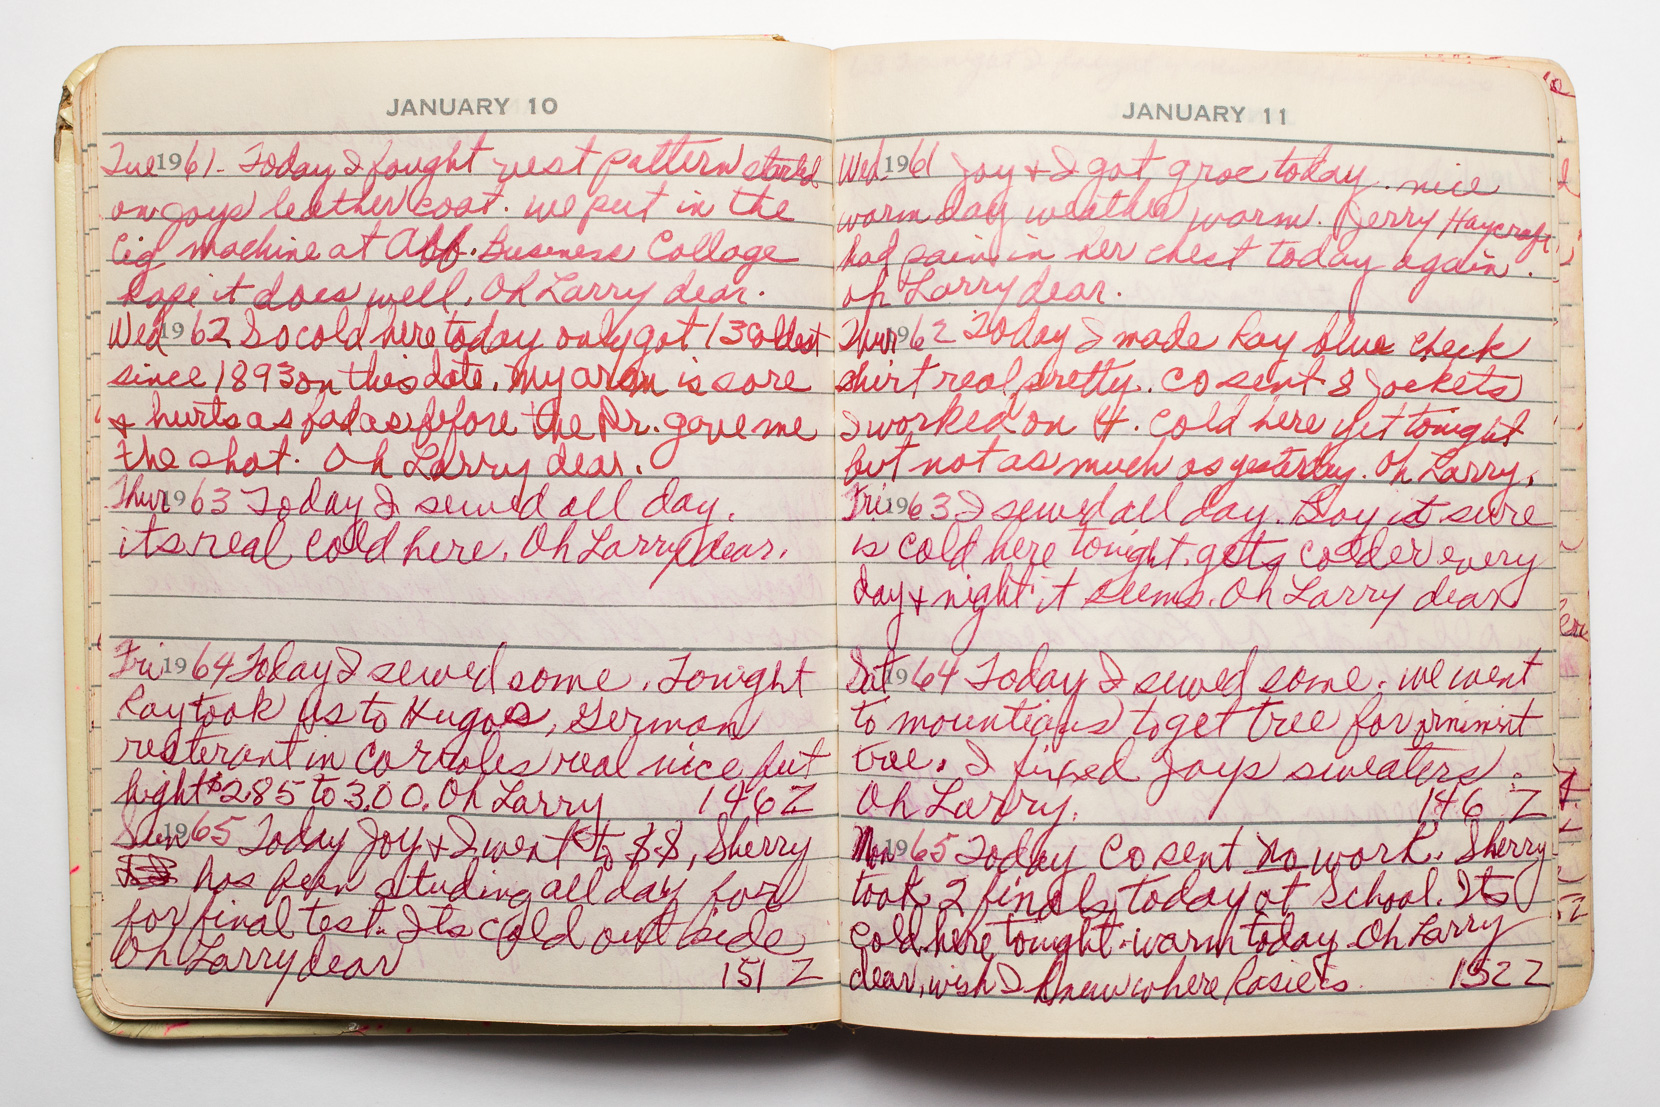 JANUARY 10
Tue 1961 - Today I bought vest pattern started
on Joys leather coat. we put in the
Cig machine at Abb. Business Collage
hope it does well. Oh Larry dear.
Wed 1962 So cold here today only got 13 coldest
since 1893 on this date. My arm is sore
& hurts as bad as before the Dr. gave me
the shot. Oh Larry dear.
Thur 1963 Today I sewed all day.
its real cold here. Oh Larry dear.
Fri 1964 Today I sewed some. Tonight
Ray took us to Hugos, German
resterant in Corrales real nice but
hight $2.85 to 3.00. Oh Larry 146 Z
Sun 1965 Today Joy & I went to $.$, Sherry
has been studing all day for
for final test. Its cold out side
Oh Larry dear 151 Z
JANUARY 11
Wed. 1961 Joy & I got groc today. nice
warm day weather warm. Jerry Haycraft
had pain in her chest today again.
oh Larry dear.
Thur 1962 Today I made Ray blue check
shirt real pretty. Co sent 3 Jackets
I worked on 4. Cold here yet tonight
but not as much as yesterday. Oh Larry.
Fri 1963 I sewed all day. Boy it sure
is cold here tonight. gets colder every
day & night it seems. Oh Larry dear
Sat 1964 Today I sewed some. we went
to mountians to get tree for
tree. I fixed Joys sweaters.
Oh Larry. 146 Z
Mon 1965 Today Co sent no work. Sherry
took 2 finals today at School. Its
cold here tonight - warm today Oh Larry
dear, wish I knew where Rosie is. 152 Z